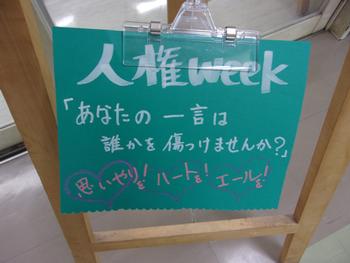 人権week
「あなたの 一言は
誰かを 傷つけませんか?」
思いやりを! ハートを! エールを!